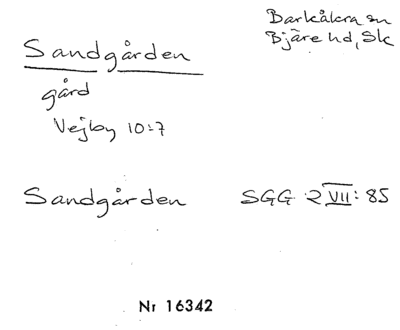 Barkåkra sn
Bjäre hd, Sk
Sandgården
gård
Vejby 10:7
Sandgården SGG 2 VII: 85
Nr 16342